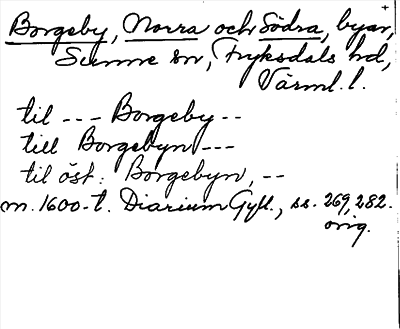 Borgeby, Norra och Södra, byar,
Sunne sn, Fryksdals hd,
Värml. l.
til --- Borgeby --
till Borgebyn ---
til öst: Borgebyn, --
m. 1600-t. Diarium Gyll., ss. 269, 282.
orig.